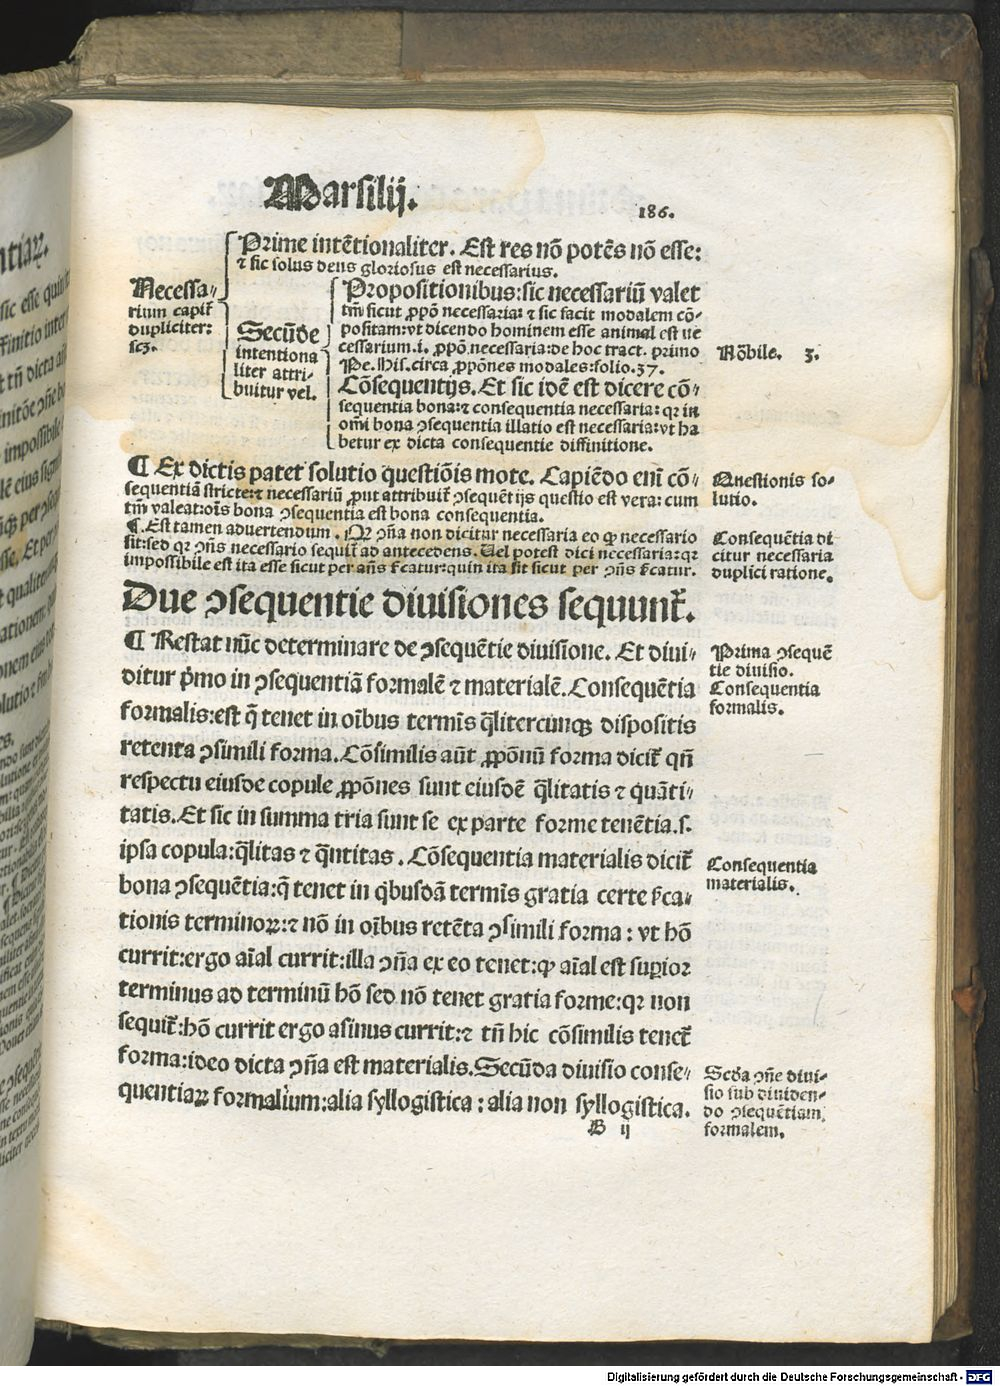 Marsilij.
186.
Necessa-
rium capit᷑
dupliciter:
scȝ.
Prime intētionaliter. Est res nō potēs nō esse:
⁊ sic solus deus gloriosus est necessarius.
Secūde
intentiona
liter attri-
buitur vel.
Propositionibus: sic necessariū valet
tm̄ sicut ꝓpō necessaria: ⁊ sic facit modalem cō-
positam: vt dicendo hominem esse animal est ne
cessarium .i. ꝓpō necessaria: de hoc tract. primo
Pe. His. circa ꝓpōnes modales: folio .37.
Nōbile. 3.
Cōsequentijs. Et sic idē est dicere cō-
sequentia bona: ⁊ consequentia necessaria: qꝛ in
om̄i bona ↄsequentia illatio est necessaria: vt ha
betur ex dicta consequentie diffinitione.
¶ Ex dictis patet solutio questiōis mote. Capiēdo eni᷑ cō-
sequentiā stricte: ⁊ necessariū ꝓut attribuit᷑ ↄsequētijs questio est vera: cum
tm̄ valeat: oīs bona ↄsequentia est bona consequentia.
Questionis so-
lutio.
¶ Est tamen advertendum. Qꝛ ↄn̄a non dicitur necessaria eo ꝙ necessario
sit: sed qꝛ ↄn̄s necessario sequit᷑ ad antecedens. Uel potest dici necessaria: qꝛ
impossibile est ita esse sicut per an̄s ſ̄catur: quin ita sit sicut per ↄn̄s ſ̄catur.
Consequētia di
citur necessaria
duplici ratione.
Due ↄsequentie diuisiones sequunt᷑.
¶ Restat nūc determinare de ↄsequētie diuisione. Et diui-
ditur p̄mo in ↄsequentiā formalē ⁊ materialē. Consequētia
formalis: est q̄ tenet in oībus termīs q̄litercūqꝫ dispositis
retenta ↄsimili forma. Cōsimilis aūt ꝓpōnū forma dicit᷑ qn̄
respectu eiusde copule ꝓpōnes sunt eiusdē q̄litatis ⁊ quāti-
tatis. Et sic in summa tria sunt se ex parte forme tenētia .s.
ipsa copula: q̄litas ⁊ q̄ntitas. Cōsequentia materialis dicit᷑
bona ↄsequētia: q̄ tenet in qͥbusdā termīs gratia certe ſ̄ca-
tionis terminoꝝ: ⁊ nō in oībus retēta ↄsimili forma: vt hō
currit: ergo aīal currit: illa ↄn̄a ex eo tenet: ꝙ aīal est suꝑior
terminus ad terminū hō sed nō tenet gratia forme: qꝛ non
sequit᷑: hō currit ergo asinus currit: ⁊ tn̄ hic cōsimilis tenet᷑
forma: ideo dicta ↄn̄a est materialis. Secūda diuisio conse-
quentiaꝝ formalium: alia syllogistica: alia non syllogistica.
Prima ↄsequē
tie diuisio.
Consequentia
formalis.
Consequentia
materialis.
Scd̄a ↄn̄e diui-
sio sub diuiden-
do ↄsequētiam
formalem.
B ij
Digitalisierung gefördert durch die Deutsche Forschungsgemeinschaft - DFG